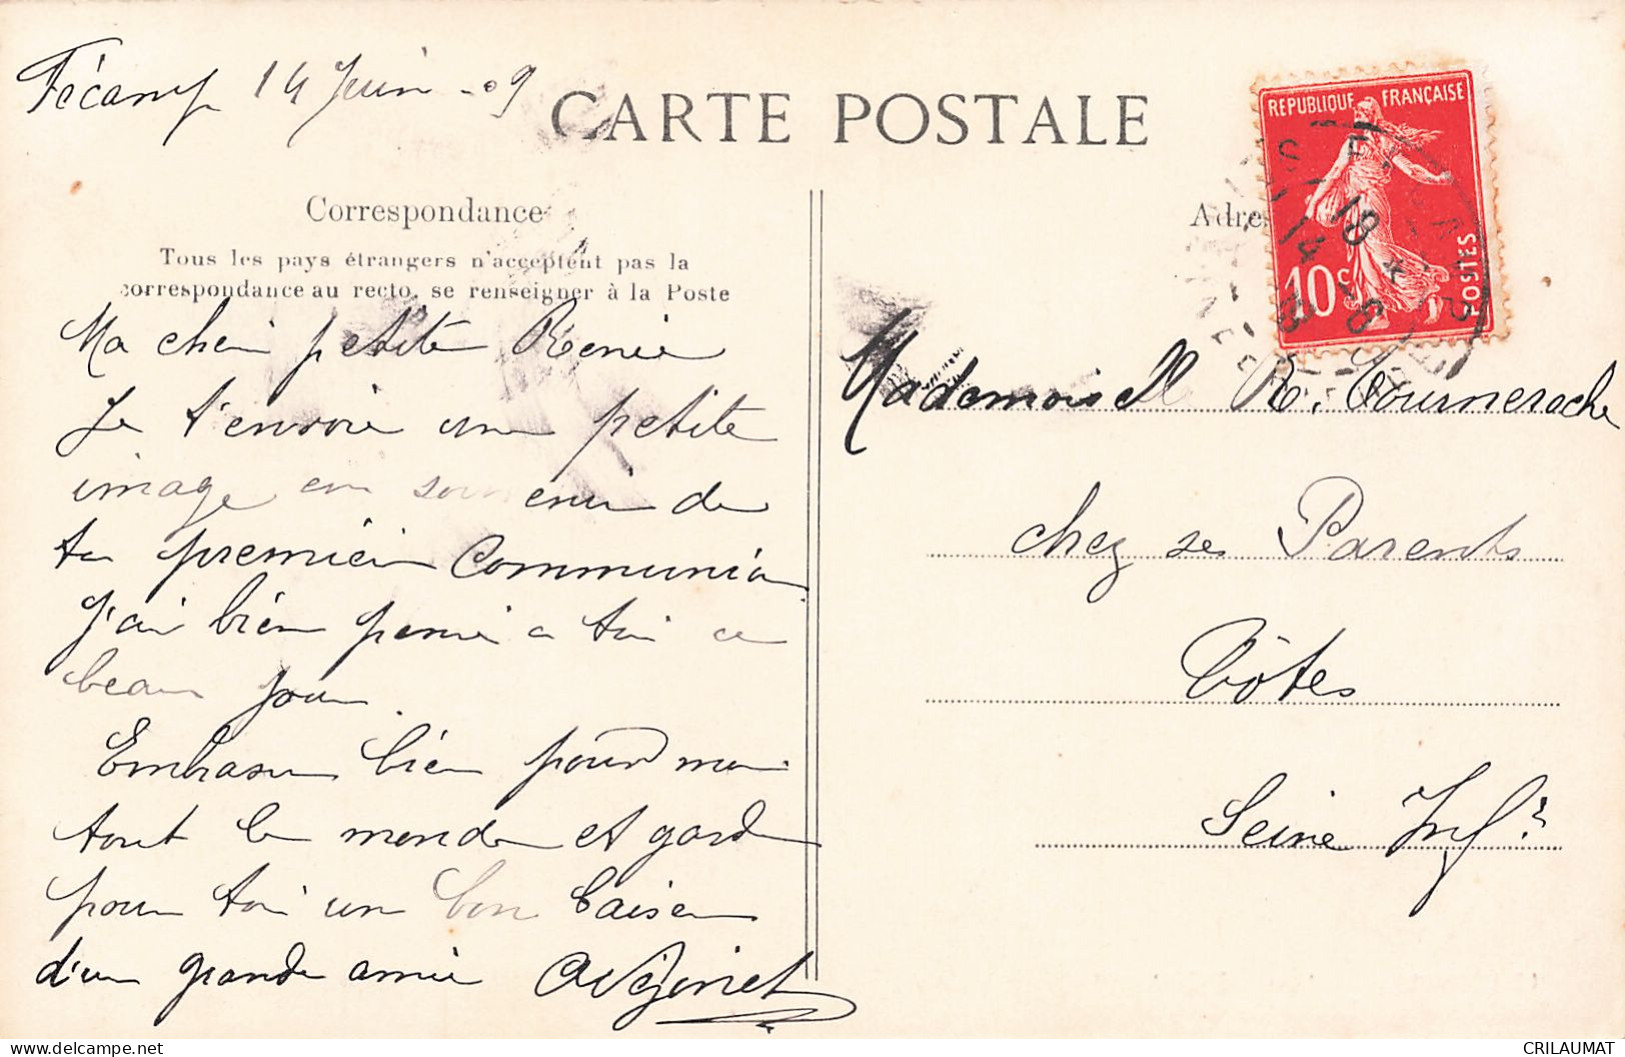 Fécamp 14 Juin - 09
CARTE POSTALE
Correspondance
Tous les pays étrangers n'acceptent pas la
correspondance au recto, se renseigner à la Poste
Ma cheri petite Renée
Je t'envoie une petite
image en souvenir de
ta premièr Communion
J'ai bien pensé a toi ce
beau jour.
Embrasse bien pour moi
tout le monde et garde
pour toi un bon baiser
d'une grande amie
REPUBLIQUE FRANÇAISE
10c
POSTES
Mademoiselle R. Tourneroche
chez ses Parents
Tôtes
Seine Infre
CRILAUMAT